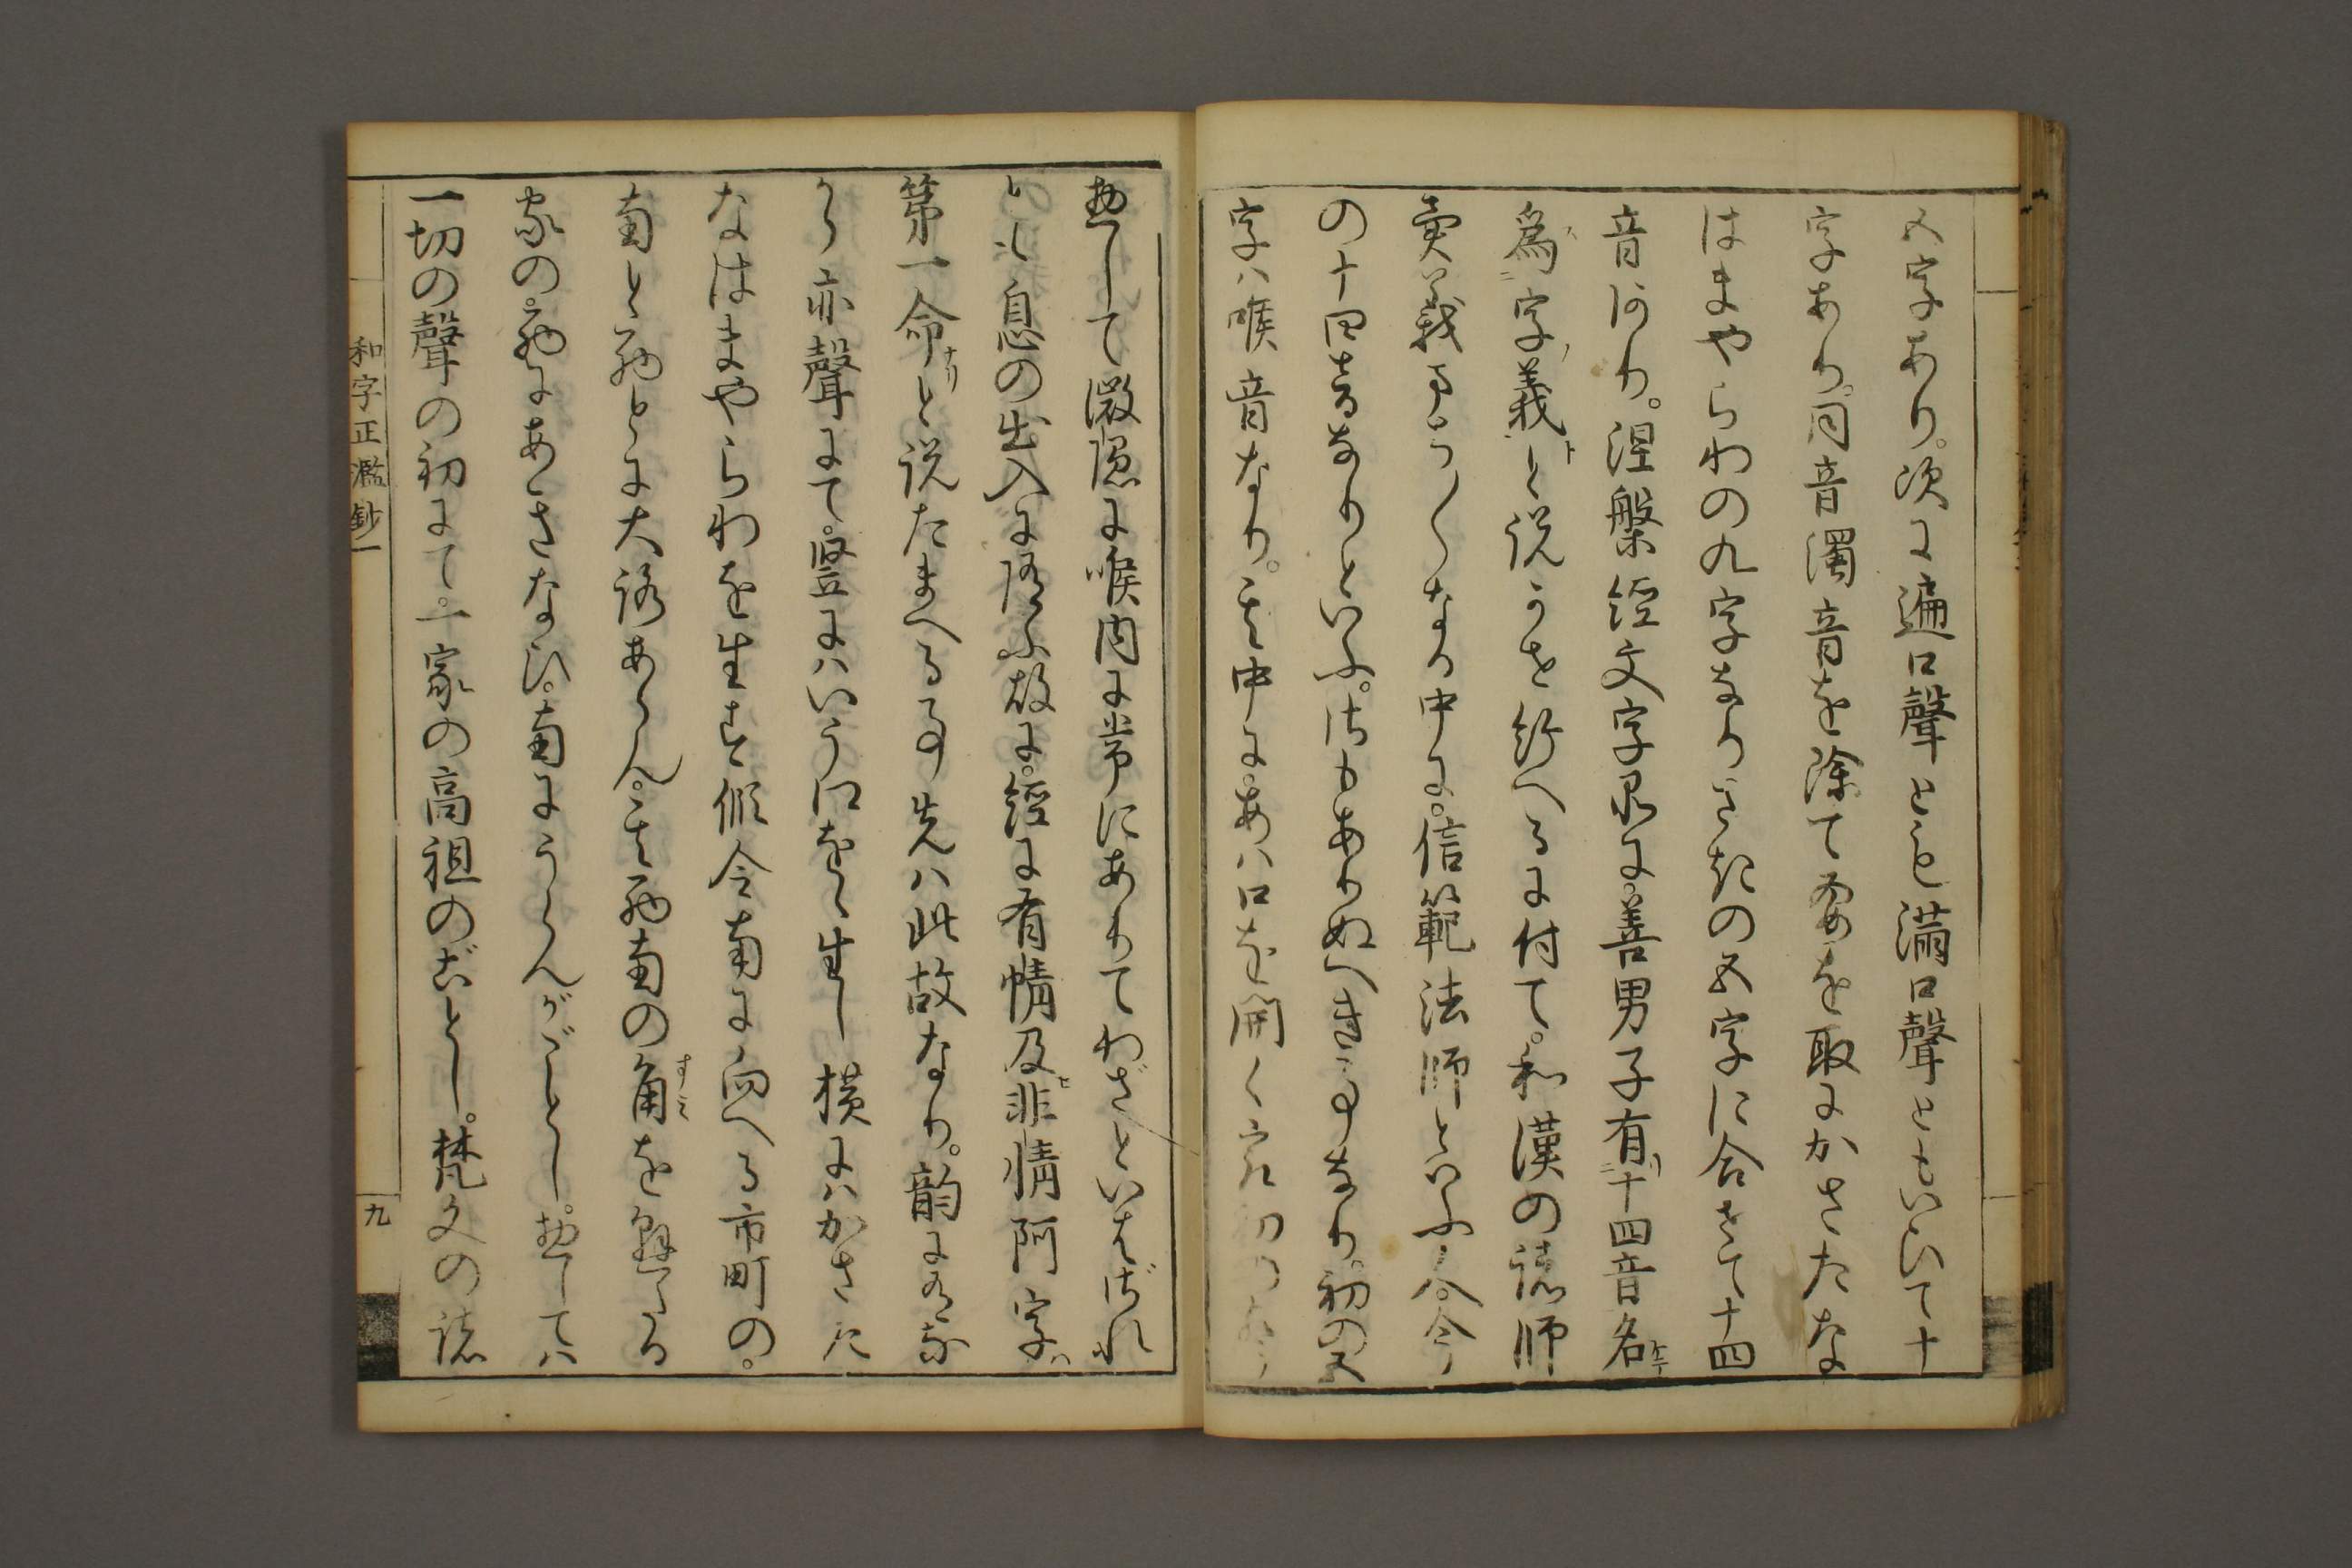 五字あり。次に遍口聲とも滿口聲ともいひて十
字あり。同音濁音を除て要を取にかさたな
はまやらわの九字なりさきの五字に合せて十四
音なり。涅槃經文字品に。善男子有十四音名
為字義と説たまへるに付て。和漢の諸師
異義まち〳〵なる中に。信範法師といふ人。今
の十四音なりといふ。さもありぬへき事なり。初の五
字ハ喉音なり。其中に。あハ口を開く字
惣して微隱に喉内に常にありてわざといはざれ
とも息の出入に隨ふ故に。經に有情及非情阿字
第一命と説たまへる事先ハ此故なり。韵にな
り亦聲にて。竪にハいう江をを生し横にハかさた
なはまやらわを生す假令南に向へる市町の。
南と西とに大路あらん。其西南の角を
家の。西にあきなひ。南にうらんがごとし。惣してハ
一切の聲の初にて。一家の高祖のごとし。梵文の諸
和字正濫鈔一
九